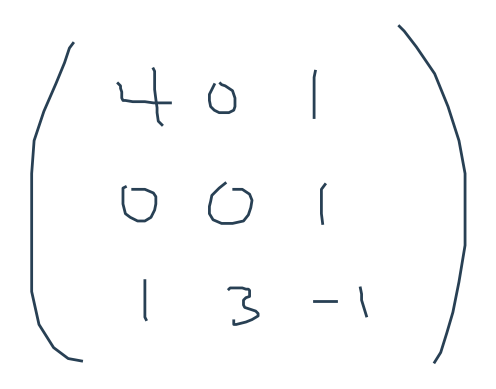 4 0 1
0 0 1
1 3 -1